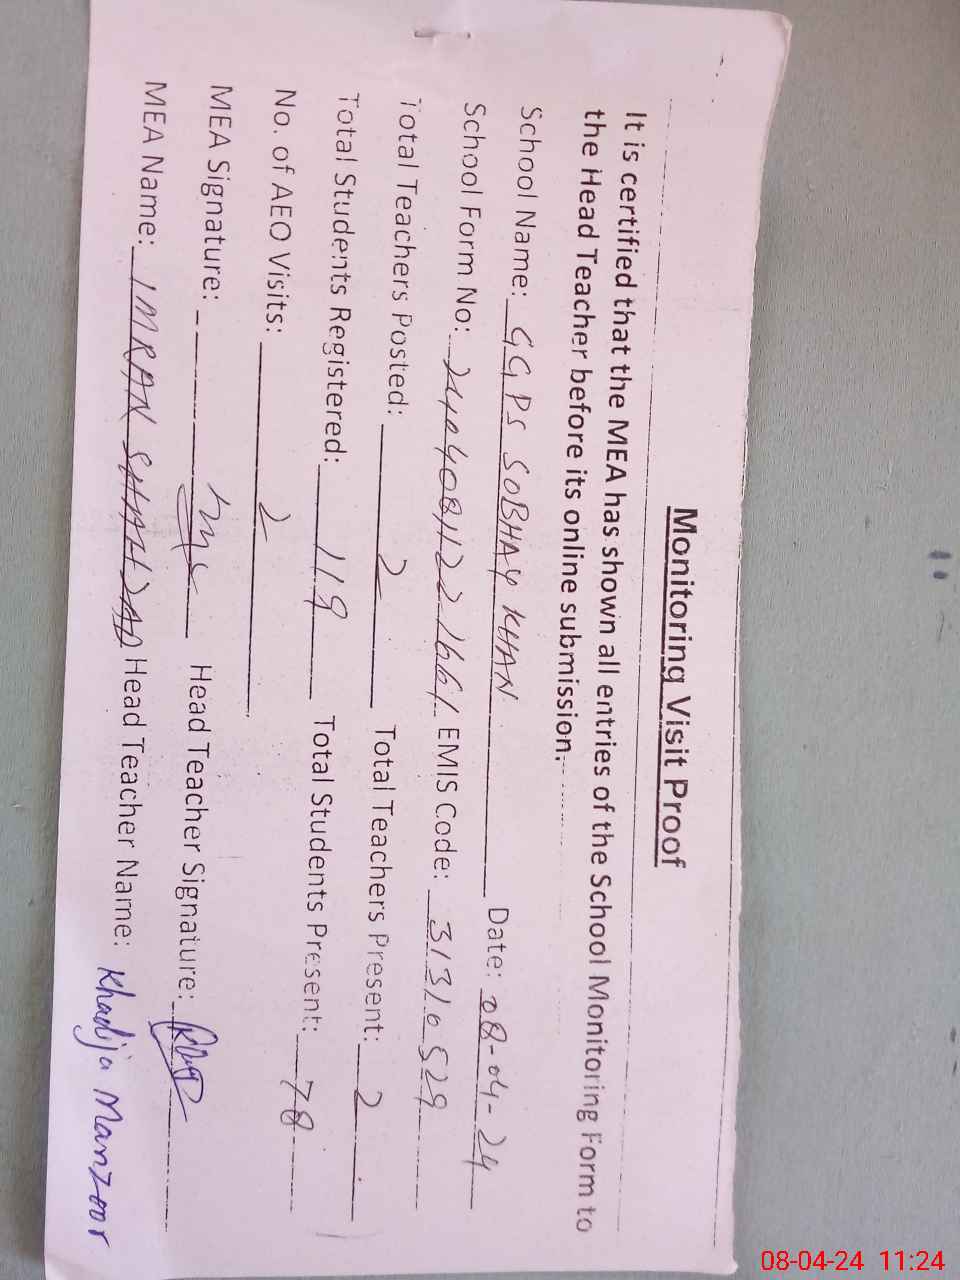 Monitoring Visit Proof
It is certified that the MEA has shown all entries of the School Monitoring Form to
the Head Teacher before its online submission.
School Name: GGPS SOBHAY KHAN Date: 08-04-24
School Form No: 24040811221661 EMIS Code: 31310529
Total Teachers Posted: 2 Total Teachers Present: 2
Total Students Registered: 119 Total Students Present: 78
No. of AEO Visits: 2
MEA Signature: Head Teacher Signature:
MEA Name: IMRAN SHAHZAD Head Teacher Name: Khadija Manzoor
08-04-24 11:24